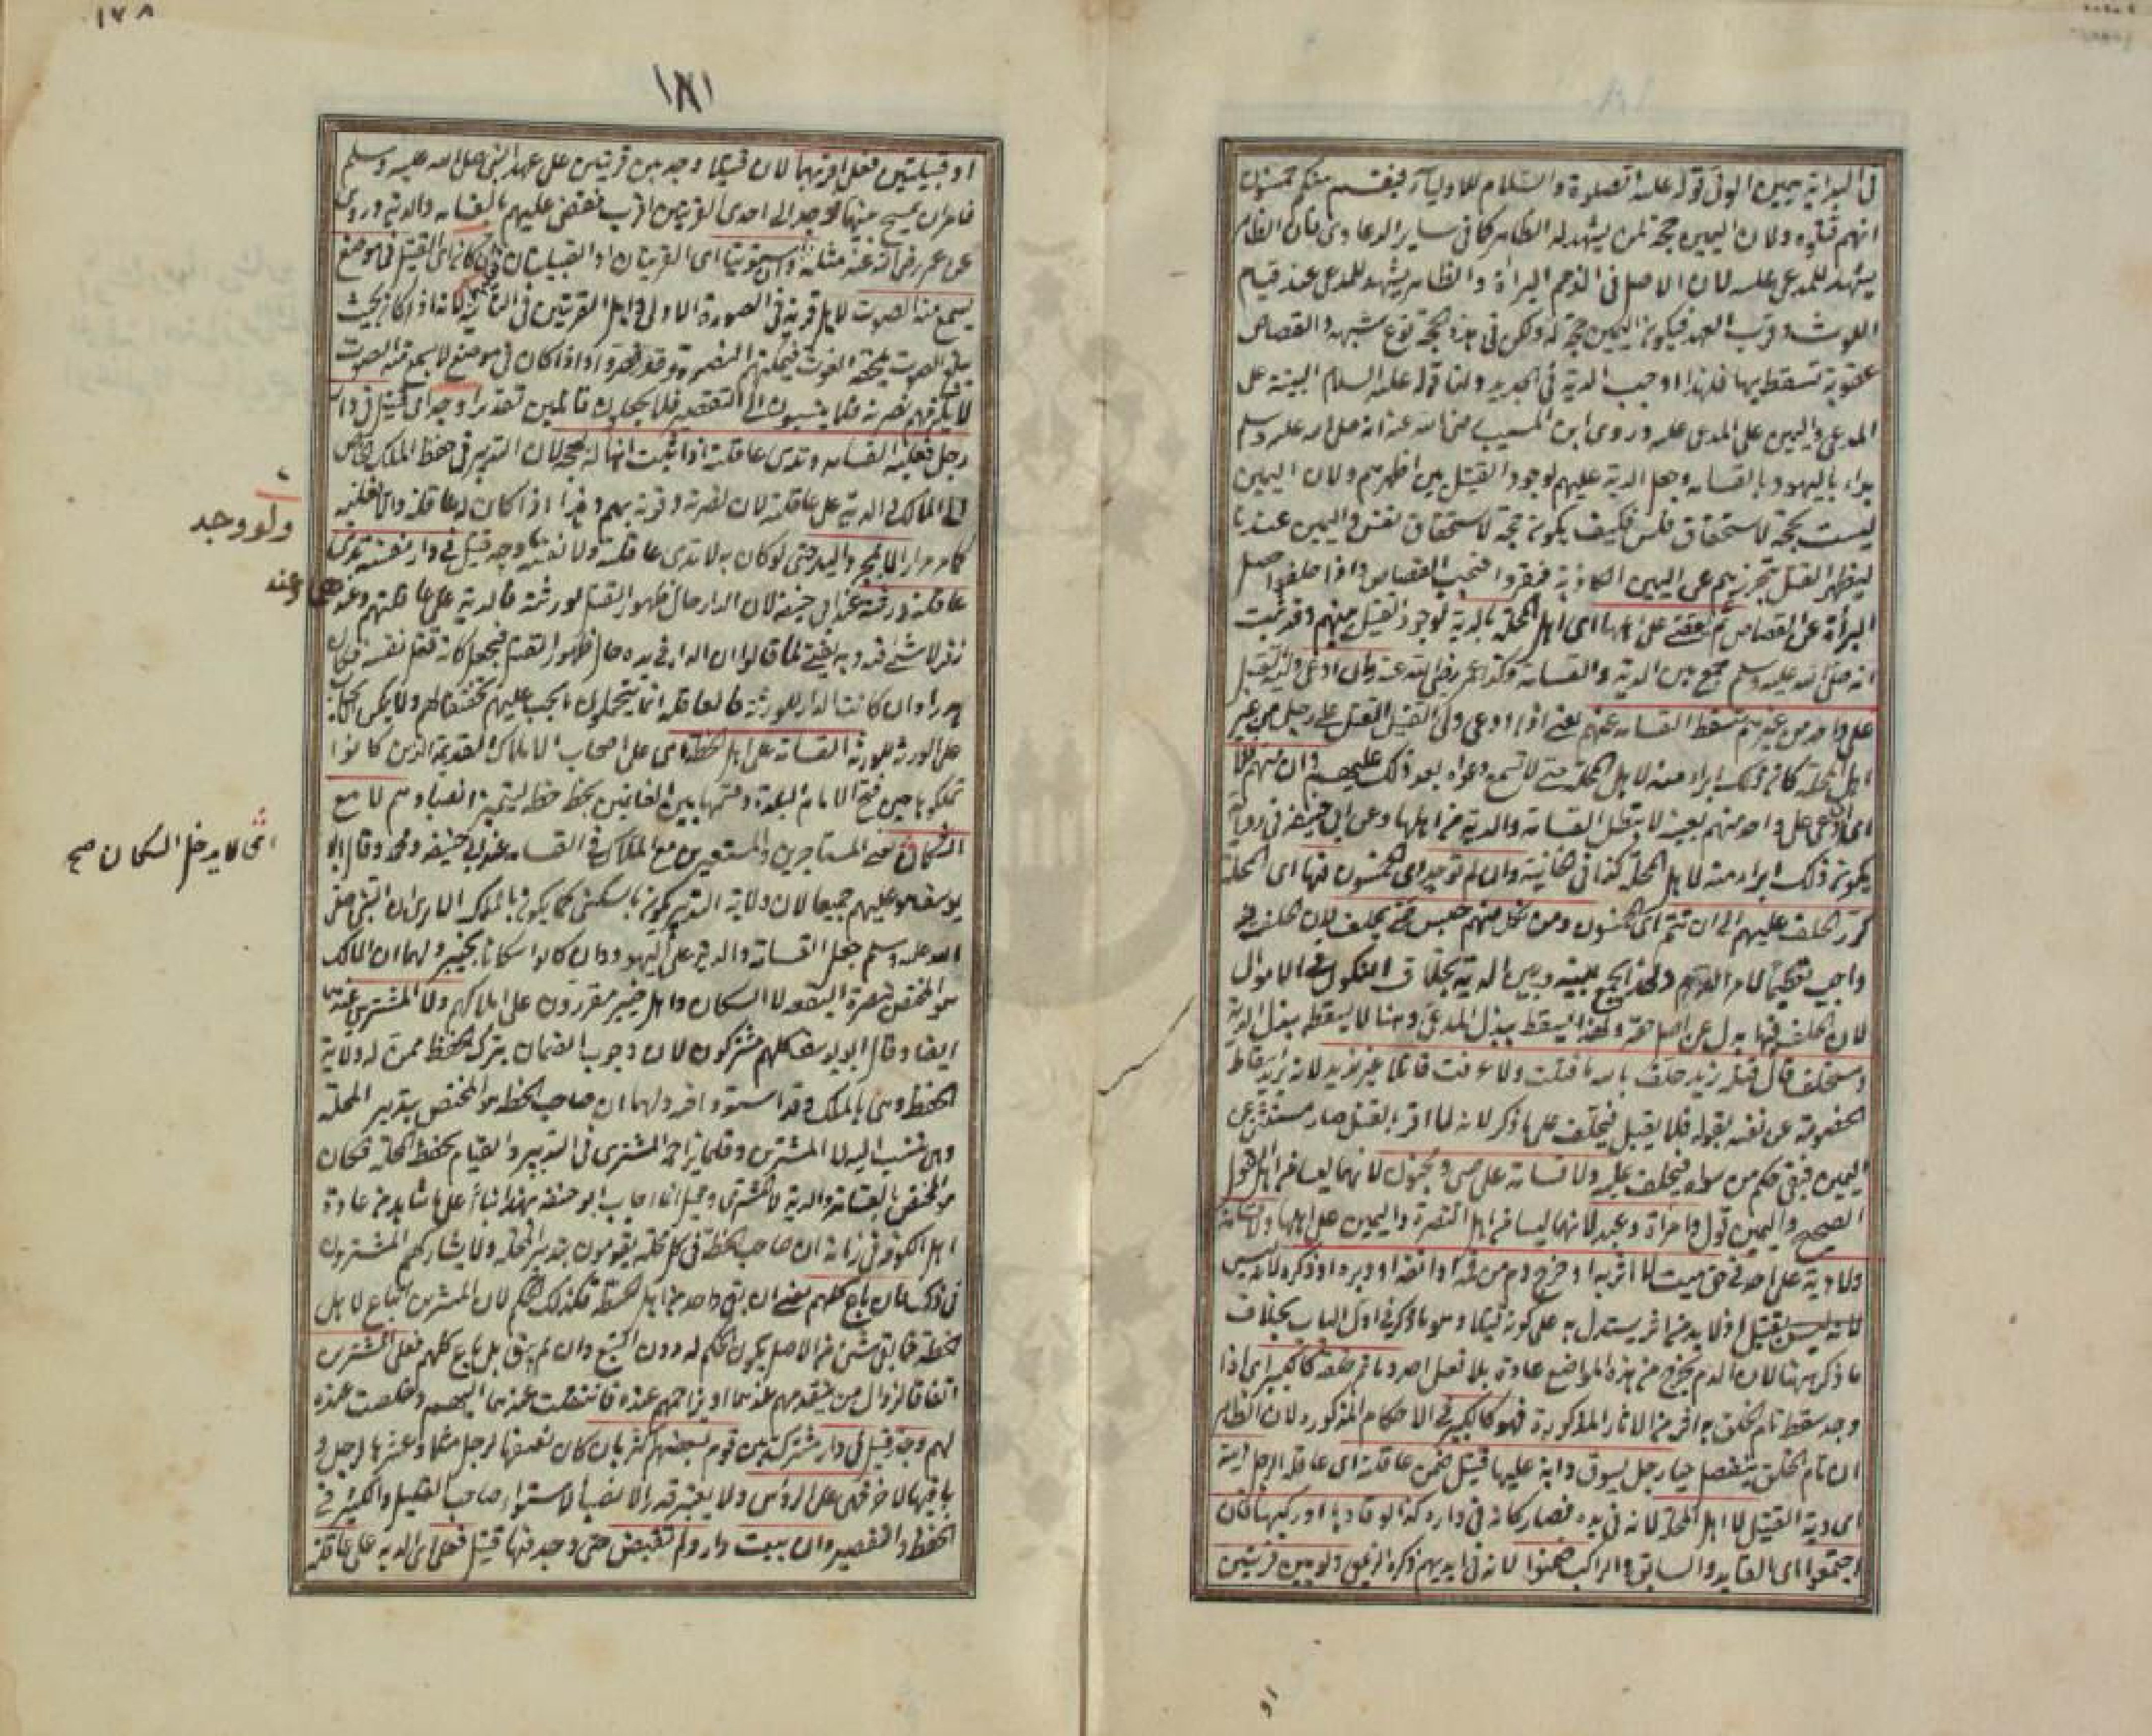 في البداية بيمين الولي قوله عليه الصلوة والسلام للاولياء فيقسم منكم خمسون
انهم قتلوه ولان اليمين حجة لمن يشهد له الظاهر كما في ساير الدعاوى فان الظاهر
يشهد للمدعى عليه لان الاصل في الذمم البراءة والظاهر يشهد للمدعى عند قيام
اللوث وقرب العهد فيكون اليمين حجة له ولكن في هذه الحجة نوع شبهة والقصاص
عقوبة تسقط بها فلهذا اوجب الدية في الجديد ولنا قوله عليه السلام البينة على
المدعى واليمين على المدعى عليه وروى ابن المسيب رضي الله عنه انه صلى الله عليه وسلم
بداء باليهود بالقسامة وجعل الدية عليهم لوجود القتيل بين اظهرهم ولان اليمين
ليست بحجة لاستحقاق فلس فكيف يكون حجة لاستحقاق نفس واليمين عندنا
ليظهر القتل بتحرزهم عن اليمين الكاذبة فيقروا فيجب القصاص واذا حلفوا حصل
البراءة عن القصاص ثم يقضى على اهلها اى اهل المحلة بالدية لوجود القتيل بينهم وقد ثبت
انه صلى الله عليه وسلم جمع بين الدية والقسامة وكذا عمر رضي الله عنه وان ادعى ولي القتيل
على واحد من غيرهم تسقط القسامة عنهم يعني اذا ادعى ولي القتيل القتل على رجل من غير
اهل المحلة كان ذلك ابراء منه لاهل المحلة حتى لا تسمع دعواه بعد ذلك عليهم وان منهم لا
اى ان ادعى على واحد منهم بعينه لا تبطل القسامة والدية من اهلها وعن ابي حنيفة في رواية
يكون ذلك ابراء منه لاهل المحلة كذا في الخانية وان لم توجد اى الخمسون فيها اى المحلة
كرر الحلف عليهم الى ان تتم اى الخمسون ومن نكل منهم حبس حتى يحلف لان الحلف فيه
واجب تعظيما لامر الدم ولهذا يجمع بينه وبين الدية بخلاف النكول في الاموال
لان الحلف فيها بدل عن اصل حقه ولهذا يسقط ببذل المدعى وهنا لا يسقط ببذل الدية
ومستحلف قال قتله زيد حلف بالله ما قتلت ولا عرفت قاتلا غير زيد لانه يريد اسقاط
الخصومة عن نفسه بقوله فلا يقبل فيحلف على ما ذكر لانه لما اقر بالقتل صار مستثنى عن
اليمين فبقى حكم من سواه فيحلف عليه ولا قسامة على صبي ومجنون لانهما ليسا من اهل القول
الصحيح واليمين قول وامراة وعبد لانهما ليسا من اهل النصرة واليمين على اهلها ولا قسامة
ولا دية على احد في حق ميت لا اثر به او خرج دم من فمه او انفه او دبره او ذكره لانه ليس
بقتيل اذ لا بد من اثر يستدل به على كونه قتيلا وهو ما ذكر في اول الباب بخلاف
ما ذكر ههنا لان الدم يخرج من هذه المواضع عادة بلا فعل احد وما تم خلقه كالكبير اى اذا
وجد سقط تام الخلق به اثر من الاثار المذكورة فهو كالكبير في الاحكام المذكورة لان الظاهر
ان تام الخلق ينفصل حيا رجل يسوق دابة عليها قتيل ضمن عاقلته اى عاقلة الرجل ديته
اى دية القتيل لا اهل المحلة لانه في يده فصار كانه في داره كذا لو قادها او ركبها فان
اجتمعوا اى القايد والسايق والراكب ضمنوا لانه في ايديهم ذكره الزيلعي ولو بين قريتين
او
١٧٨
١٨١
او قبيلتين فعلى اقربهما لان قتيلا وجد بين قريتين على عهد النبي صلى الله عليه وسلم
فامر ان يمسح بينهما فوجد الى احدى القريتين اقرب فقضى عليهم بالقسامة والدية وروى
عن عمر رضي الله عنه مثله وان استويتا اى القريتان او القبيلتان ان كان اى القتيل في موضع
يسمع منه الصوت لاهل قرية في الصورة الاولى واهل القريتين في الثانية لانه اذا كان بحيث
يبلغ الصوت يلحقه الغوث فيمكنهم النصرة وقد قصروا واذا كان في موضع لا يسمع منه الصوت
لا يلزمهم نصرته فلا ينسبون الى التقصير فلا يجعلون قاتلين تقديرا وجد اى قتيل في دار
رجل فعليه القسامة وتدى عاقلته اذا ثبت انها له بالحجة لان التدبير في حفظ الملك الخاص
الى المالك والدية على عاقلته لان نصرته وقوته بهم وهذا اذا كان له عاقلة والا فعليه
كما مر مرارا لا بمجرد اليد حتى لو كان به لا تدى عاقلته ولا نفسه وجد قتيل في دار نفسه تدى
عاقلة ورثته عند ابي حنيفة لان الدار حال ظهور القتيل لورثته فالدية على عاقلتهم وعند
زفر لا شئ فيه وبه يفتى لما قالوا ان الدار في يده حال ظهور القتيل فيجعل كانه قتل نفسه فكان
هدرا وان كانت الدار للورثة فالعاقلة انما يتحملون ما يجب عليهم تخفيفا لهم ولا يمكن الايجاب
على الورثة للورثة القسامة على اهل الخطة اى على اصحاب الاملاك القديمة الذين كانوا
تملكوها حين فتح الامام البلدة وقسمها بين الغانمين بخط خطه ليتميز انصباؤهم لا مع
السكان يعنى المستاجرين والمستعيرين مع الملاك في القسامة عند ابي حنيفة ومحمد وقال ابو
يوسف هو عليهم جميعا لان ولاية التدبير تكون بالسكنى كما يكون بالملك الا يرى ان النبي صلى
الله عليه وسلم جعل القسامة والدية على اليهود وان كانوا سكانا بخيبر ولهما ان المالك
هو المختص بنصرة البقعة لا السكان واهل خيبر مقررون على املاكهم ولا المشترين عندهما
ايضا وقال ابو يوسف كلهم مشتركون لان وجوب الضمان بترك الحفظ ممن له ولاية
الحفظ وهى بالملك وقد استووا فيه ولهما ان صاحب الخطة هو المختص بتدبير المحلة
وهى تنسب اليه لا المشترين وقلما يزاحم المشتري في التدبير والقيام بحفظ المحلة فكان
هو المختص بالقسامة والدية لا المشتري وقيل انما اجاب ابو حنيفة بهذا بناء على ما شاهد من عادة
اهل الكوفة في زمانه ان صاحب الخطة في كل محلة يقومون بتدبير المحلة ولا يشاركهم المشترون
في ذلك فان باع كلهم يعنى ان بقى واحد من اهل الخطة فكذلك الحكم لان المشترين اتباع لاهل
الخطة فما بقى شئ من الاصل يكون الحكم له دون التبع وان لم يبق بل باع كلهم فعلى المشترين
اتفاقا لزوال من يتقدمهم عندهما او يزاحمهم عنده فانتقلت عندهما اليهم وخلصت عنده
لهم وجد قتيل في دار مشتركة بين قوم لبعضهم اكثر بان كان نصفها لرجل مثلا وعشرها لرجل و
باقيها لاخر فهى على الرؤس ولا يعتبر قدر الانصباء لاستواء صاحب القليل والكثير في
الحفظ والتقصير وان بيعت دار ولم تقبض حتى وجد فيها قتيل فعلى اى الدية على عاقلة
ولو وجد
وعند
اى لا يدخل السكان صح